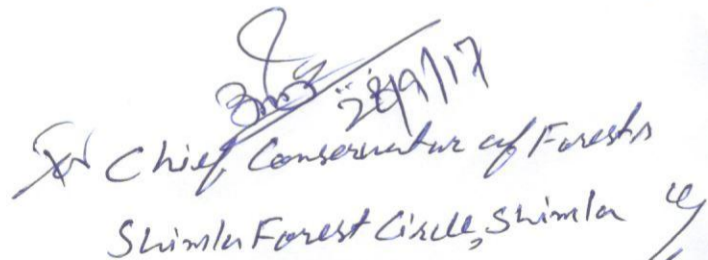 28/9/17
Chief Conservator of Forests
Shimla Forest Circle, Shimla